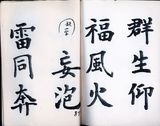 群生仰
福風火
妄泡
雷同奔